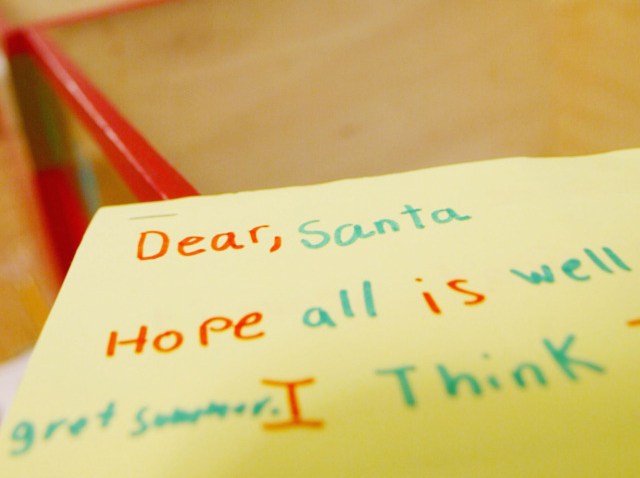 Dear, Santa
Hope all is well
gret summer. I Think